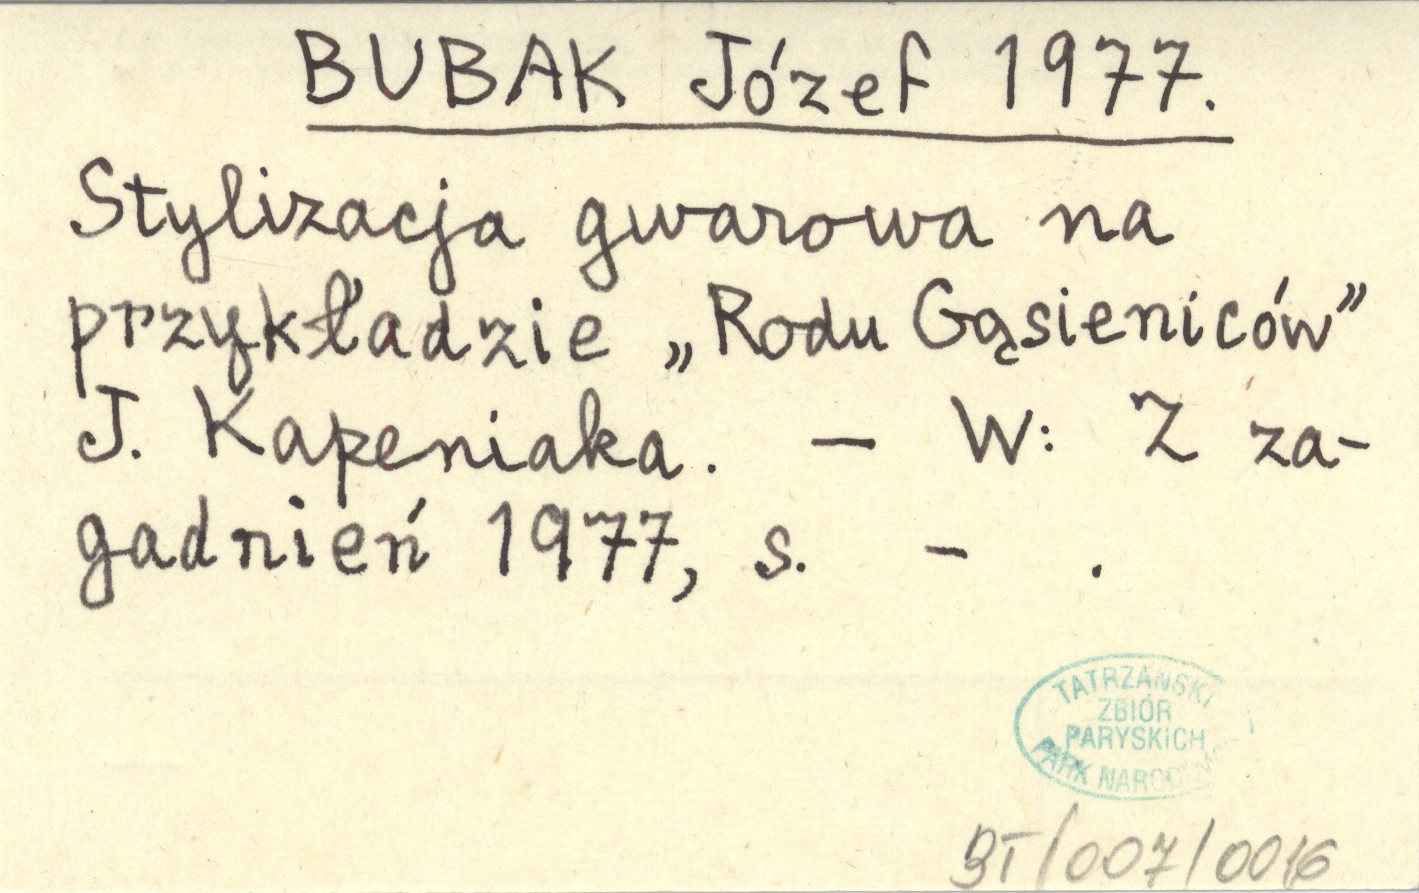 BUBAK Józef 1977.
Stylizacja gwarowa na
przykładzie „Rodu Gąsieniców”
J. Kapeniaka. — W: Z za-
gadnień 1977, s. – .
TATRZAŃSKI
ZBIÓR
PARYSKICH
PARK NARODOWY
BT/007/0016